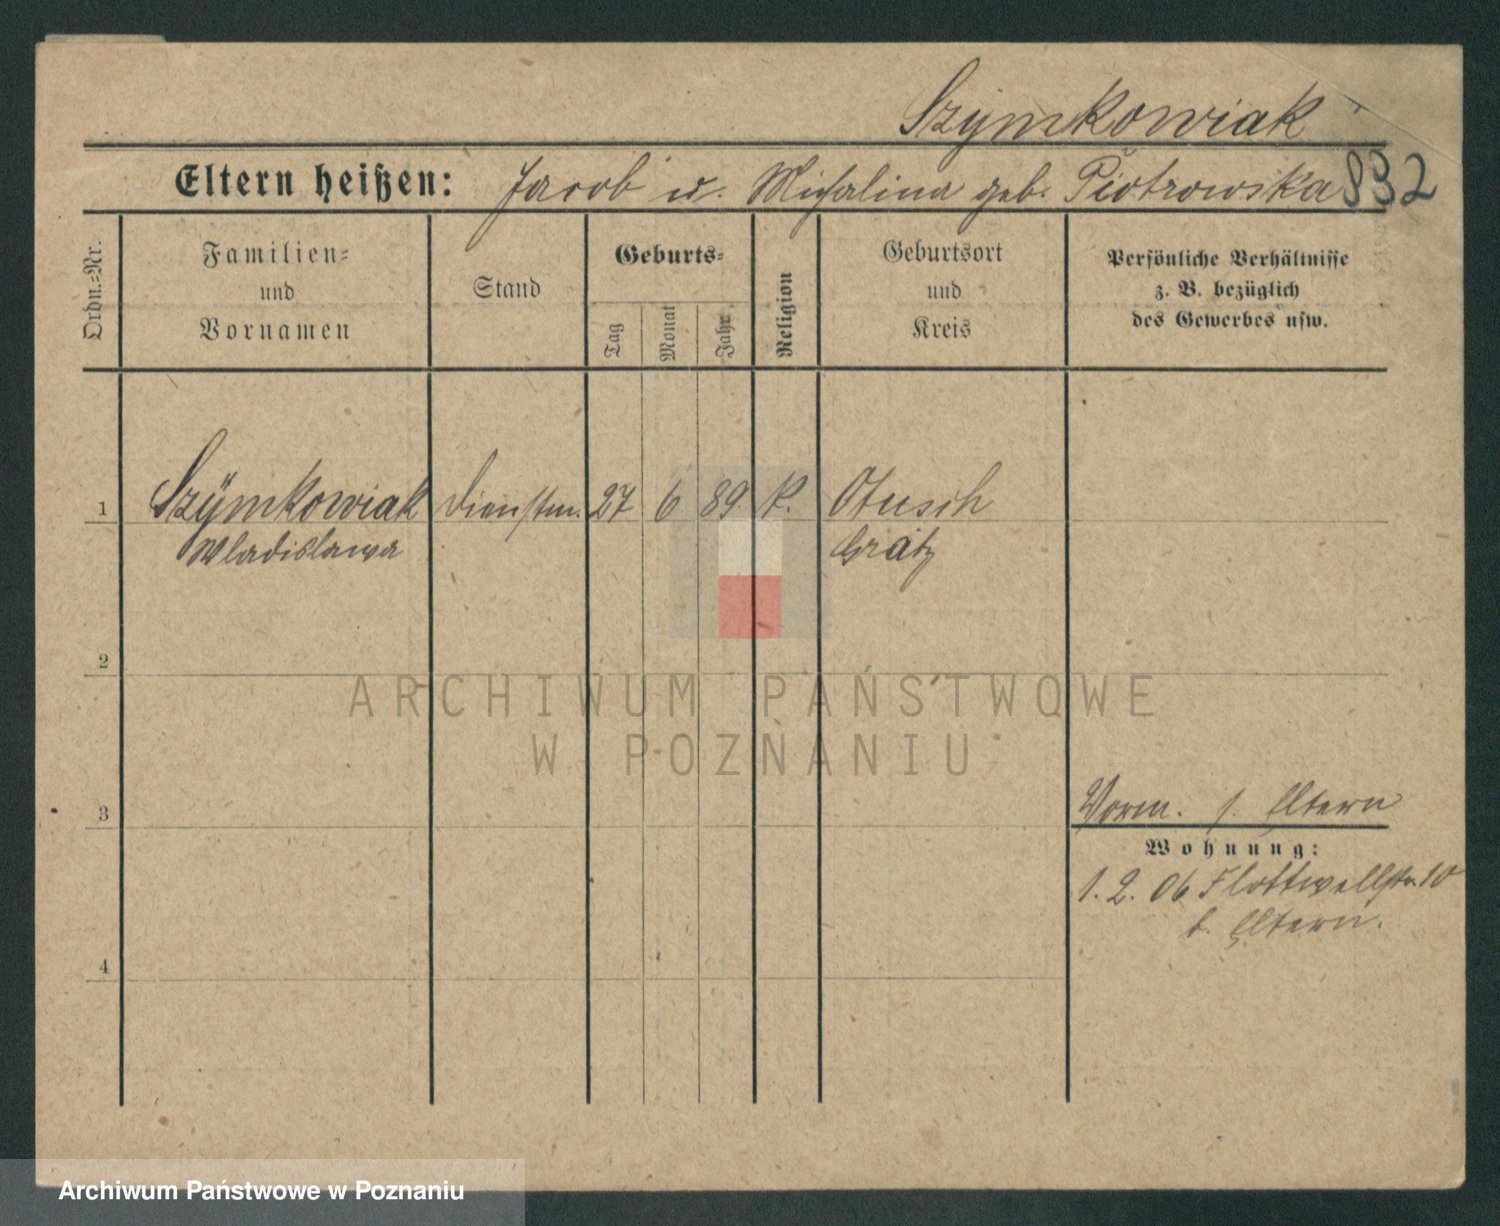 Szymkowiak
Eltern heißen: Jacob u. Michalina geb. Piotrowska 832
Ordn.=Nr.
Familien=
und
Vornamen
Stand
Geburts=
Tag
Monat
Jahr
Religion
Geburtsort
und
Kreis
Persönliche Verhältnisse
z. B. bezüglich
des Gewerbes usw.
1 Szymkowiak Dienstm. 27 6 89 k. Otusch
Wladislawa Grätz
2
ARCHIWUM PAŃSTWOWE
W POZNANIU
3 Vorm. s. Eltern
Wohnung:
1. 2. 06 Flottwellstr. 10
b. Eltern.
4
Archiwum Państwowe w Poznaniu